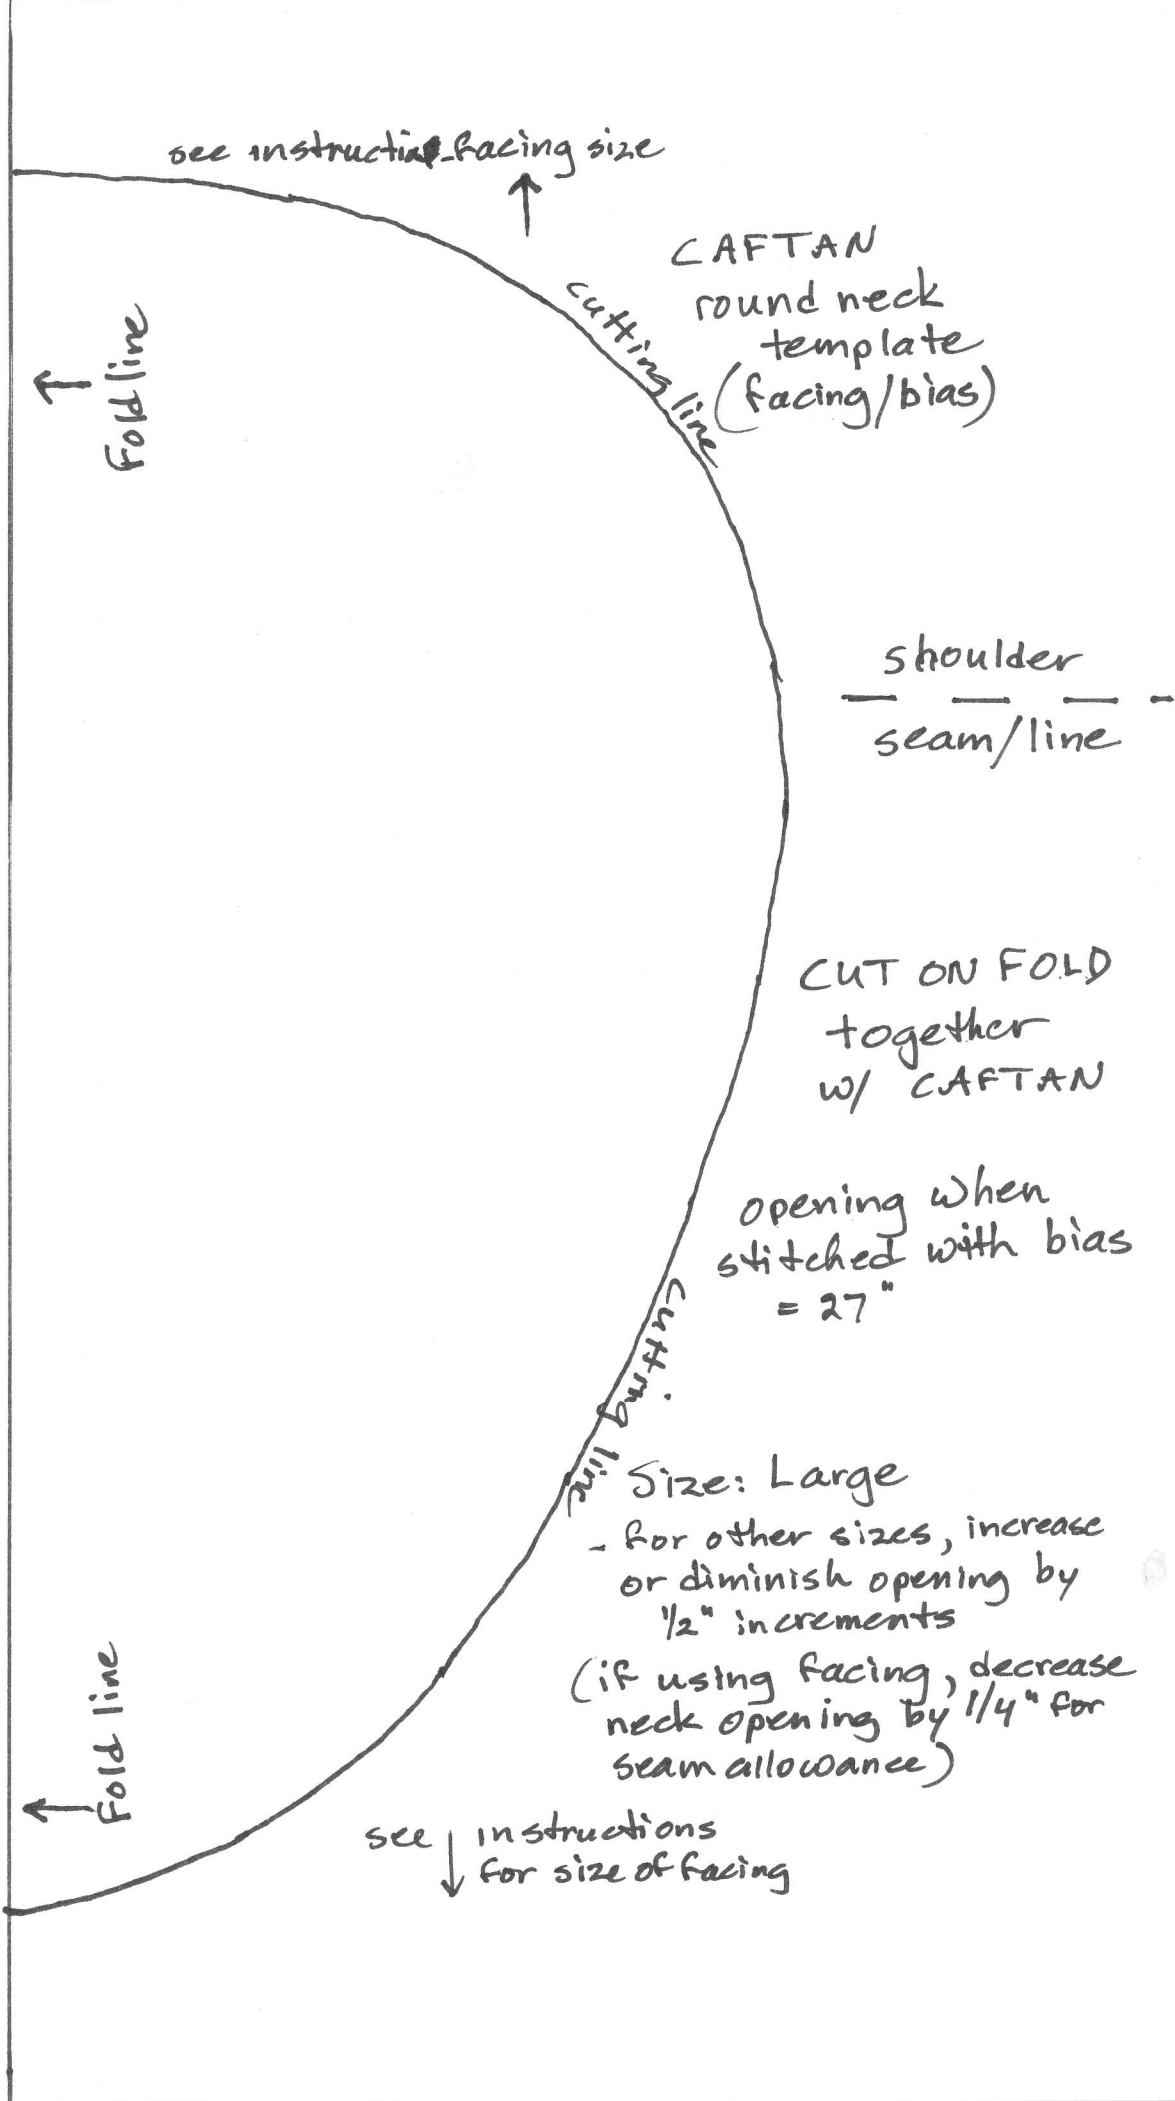 see instructi -facing size
CAFTAN
round neck
template
(facing/bias)
cutting line
Fold line
shoulder
seam/line
CUT ON FOLD
together
w/ CAFTAN
opening when
stitched with bias
= 27"
cutting line
Size: Large
- for other sizes, increase
or diminish opening by
1/2" increments
(if using facing, decrease
neck opening by 1/4" for
seam allowance)
Fold line
see instructions
for size of facing